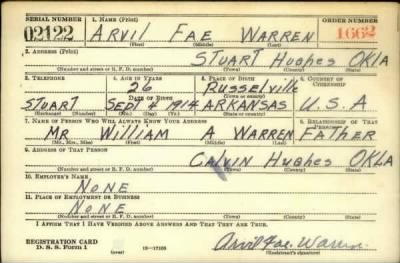 SERIAL NUMBER 1. NAME (Print) ORDER NUMBER
02122 ARVIL FAE WARREN 1662
(First) (Middle) (Last)
2. ADDRESS (Print)
STUART Hughes OKLA
(Number and street or R. F. D. number) (Town) (County) (State)
3. TELEPHONE 4. AGE IN YEARS 5. PLACE OF BIRTH 6. COUNTRY OF CITIZENSHIP
26 Russelville
DATE OF BIRTH (Town or county)
STUART SEPT 4 1914 ARKANSAS U.S.A
(Exchange) (Number) (Mo.) (Day) (Yr.) (State or country)
7. NAME OF PERSON WHO WILL ALWAYS KNOW YOUR ADDRESS 8. RELATIONSHIP OF THAT PERSON
MR. William A WARREN FATHER
(Mr., Mrs., Miss) (First) (Middle) (Last)
9. ADDRESS OF THAT PERSON
CALVIN Hughes OKLA
(Number and street or R. F. D. number) (Town) (County) (State)
10. EMPLOYER'S NAME
NONE
11. PLACE OF EMPLOYMENT OR BUSINESS
NONE
(Number and street or R. F. D. number) (Town) (County) (State)
I AFFIRM THAT I HAVE VERIFIED ABOVE ANSWERS AND THAT THEY ARE TRUE.
REGISTRATION CARD
D. S. S. Form 1 (over) 16—17105 Arvil Fae Warren
(Registrant's signature)